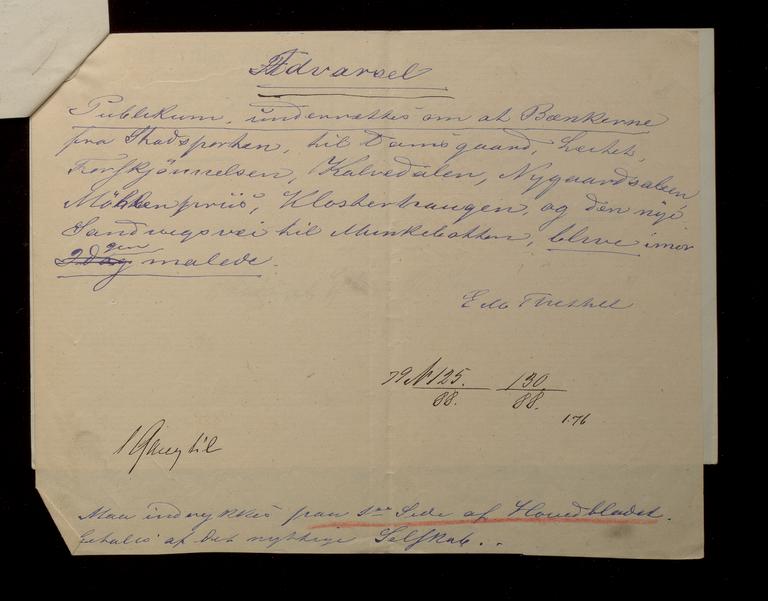 Advarsel
Publikum, underrettes om at Bænkerne
fra Stadsporten, til Damsgaard, Lechet,
Forskjönnelsen, Kalvedalen, Nygaardsaleen
Möhlenpriis, Klosterhaugen, og den nye
Sandvigsvei til Munkebotten, blive imor
gen
Idag malede.
E M
79 N 125. 130.
88. 88.
1.76
1 Gang til
Maa indrykkes paa 1ste Side af Hovedbladet.
betales af Det nyttige Selskab..